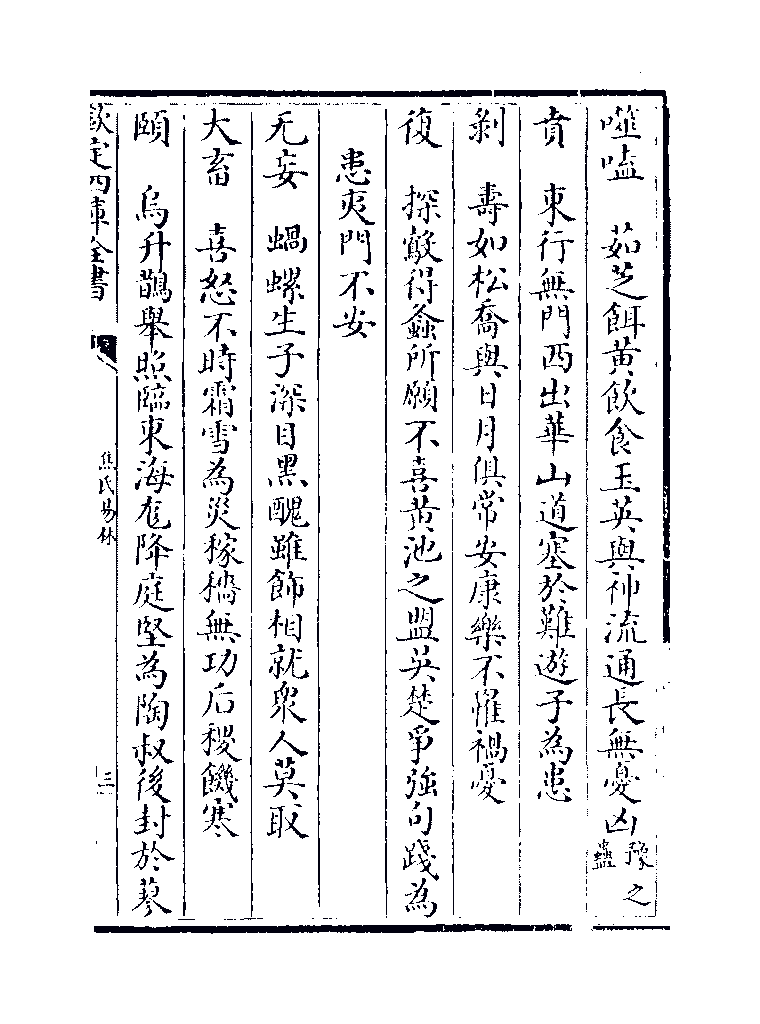 噬嗑　茹芝餌黃飲食玉英與神流通長無憂凶 豫之蠱
賁　東行無門西出華山道塞於難遊子為患
剝　壽如松喬與日月俱常安康樂不罹禍憂
復　探鷇得螽所願不喜黃池之盟英楚爭強句踐為
患夷門不安
无妄　蝸螺生子深目黑醜雖飾相就衆人莫取
大畜　喜怒不時霜雪為災稼穡無功后稷饑寒
頤　烏升鵲舉照臨東海尨降庭堅為陶叔後封於蓼
欽定四庫全書　焦氏易林　三